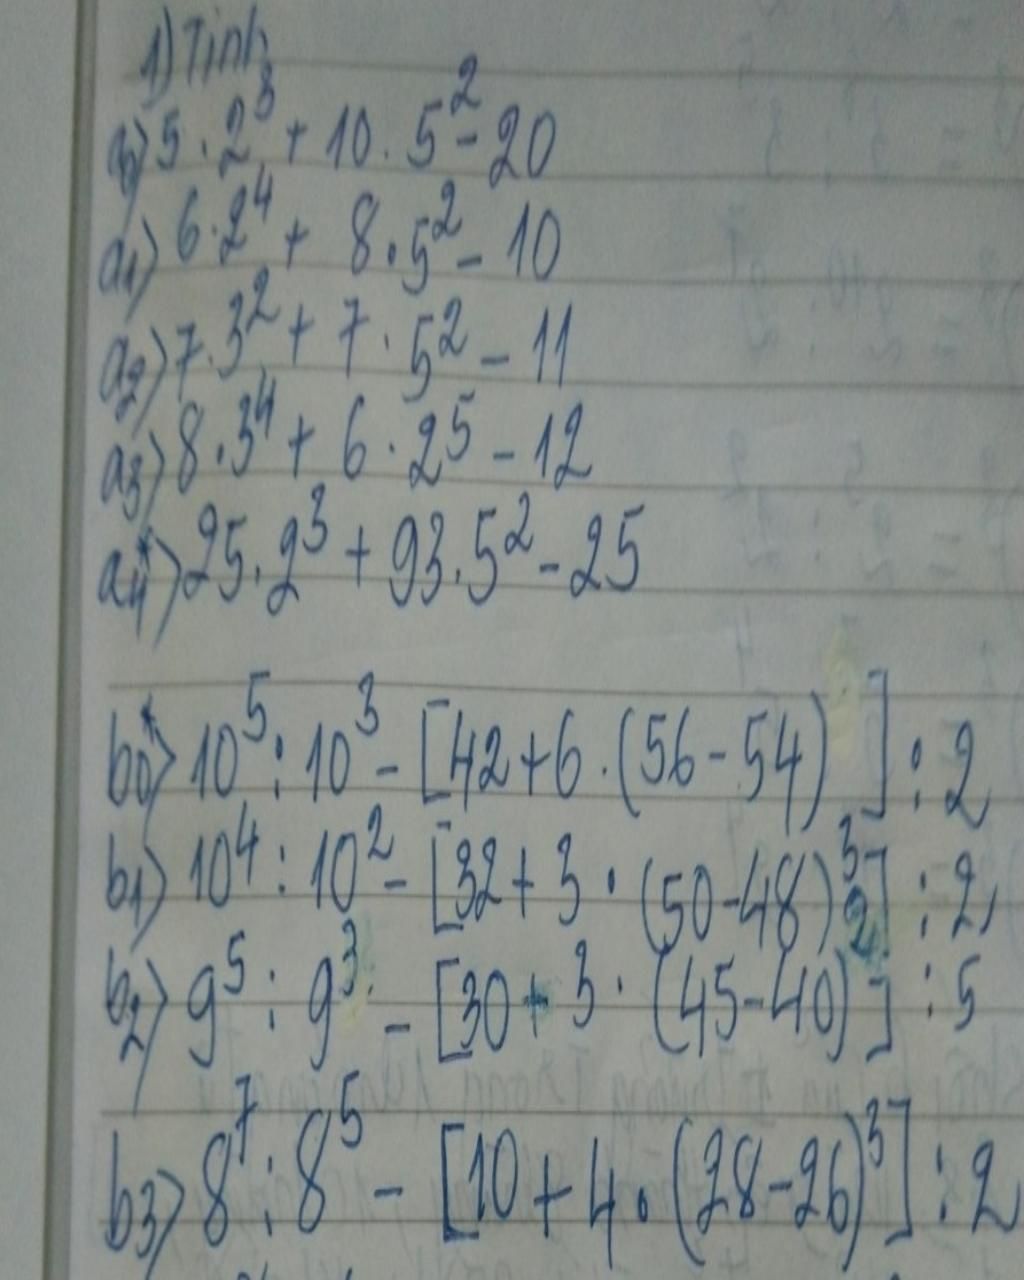 1) Tính
a) 5 . 2³ + 10 . 5² - 20
a1) 6 . 2⁴ + 8 . 5² - 10
a2) 7 . 3² + 7 . 5² - 11
a3) 8 . 3⁴ + 6 . 2⁵ - 12
a4*) 25 . 2³ + 93 . 5² - 25
b0*) 10⁵ : 10³ - [42 + 6 . (56 - 54)] : 2
b1) 10⁴ : 10² - [32 + 3 . (50 - 48)³] : 2
b2) 9⁵ : 9³ - [30 + 3 . (45 - 40)²] : 5
b3) 8⁷ : 8⁵ - [10 + 4 . (28 - 26)³] : 2